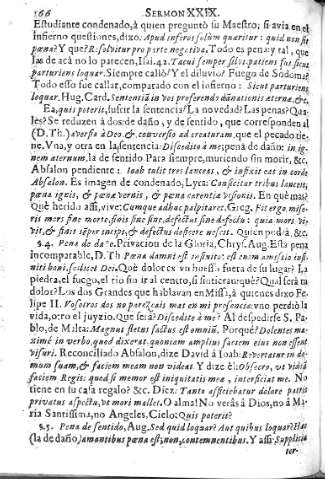 166 SERMON XXIX.
Estudiante condenado, à quien preguntò su Maestro; si avia en el
Infierno questiones, dixo: Apud inferos solùm quæritur: quid non sit
pœna? Y què? R. solvitur pro parte negativa. Todo es pena; y tal, que
las de acà no lo parecen, Isai. 42. Tacui semper silui, patiens fui sicut
parturiens loquar. Siempre callò? Y el diluvio? Fuego de Sodoma?
Todo esso fue callar, comparado con el infierno: Sicut parturiens
loquar. Hug. Card. sententiã in vos proferendo dãnationis æterna, &c.
Ea, quis poterit, sufrir la sentencia? La novedad? Las penas? Qua-
les? Se reduzen à dos: de daño, y de sentido, que corresponden al
(D. Th.) aversio à Deo, & conversio ad creaturam, que el pecado tie-
ne. Vna, y otra en la sentencia: Discedite à me; pena de daño: in ig-
nem æternum, la de sentido Para siempre, muriendo sin morir, &c.
Absalon pendiente: Ioab tulit tres lanceas, & infixit eas in corde
Absalon. Es imagen de condenado, Lyra:
pœna ignis, & pœna vermis, & pœna carentia visionis. En què mas?
Què herida assi, vive: Cumque adhuc palpitaret. Greg. Fit ergo mise-
ris mors sine morte, finis sine fine, defectus sine defectu: quia mors vi-
vit, & finis semper incipit, & defectus deficere nescit. Quien podrà, &c.
§.4. Pena de daño. Privacion de la Gloria, Chrys. Aug. Esta pena
incomparable, D. Th. Pœna damni est infinita: est enim amissio infi-
niti boni, scilicet Dei. Què dolor es vn huesso, fuera de su lugar? La
piedra, el fuego, el rio sin ir al centro, si sintieran, què? Qual serà tu
dolor? Los dos Grandes que hablavan en Missa, à quienes dixo Fe-
lipe II. Vosotros dos no parezcais mas en mi presencia: vno perdiò la
vida, otro el juyzio. Que serà? Discedite à me? Al despedirse S. Pa-
blo, de Malta: Magnus fletus factus est omniũ. Porquè? Dolentes ma-
ximè in verbo, quod dixerat, quoniam amplius faciem eius non essent
visuri. Reconciliado Absalon, dize David à Ioab: Revertatur in do-
mum suam, & faciem meam non videat. Y dize èl: Obsecro, vt vidiã
faciem Regis: quod si memor est iniquitatis meæ, interficiat me. No
tiene en su casa regalo? &c. Diez. Tanto afficiebatur dolore patris
privatus aspectu, vt mori mallet. O alma! No veràs à Dios, no à Ma-
ria Santissima, no Angeles, Cielo: Quis poterit?
§.5. Pena de sentido, Aug. Sed quid loquar? Aut quibus loquar? Hæc
(la de daño,) amantibus pœna est, non contemnentibus. Y assi: Supplicia
ter-